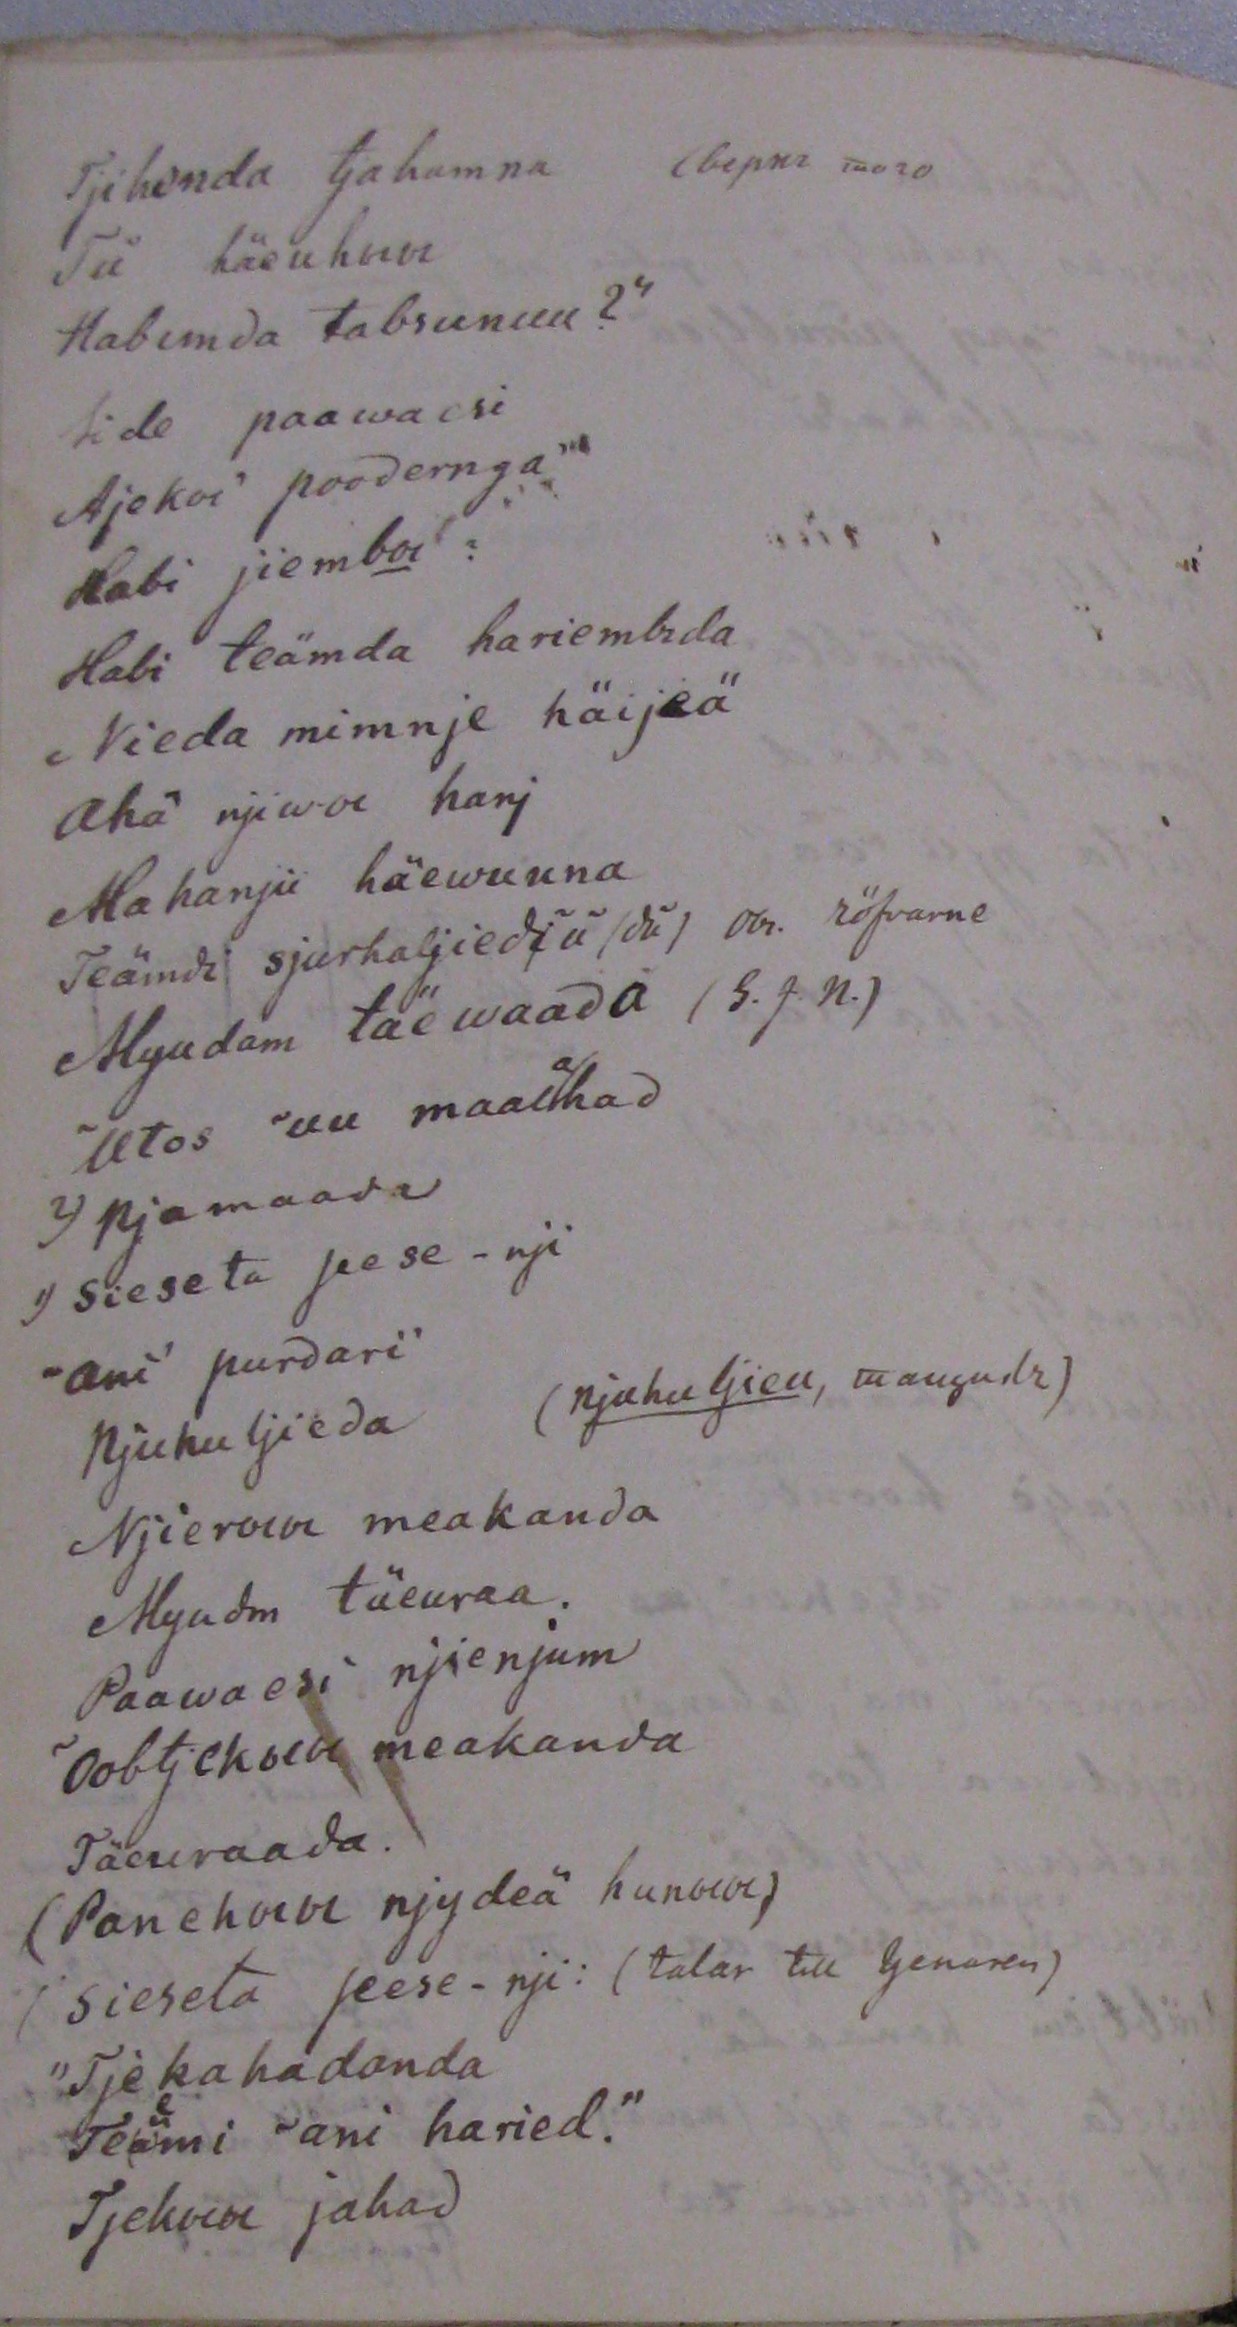 Tjihonda tjahamna (верхъ того
Tü häeuhoιoι
Habinda tabsunuu?"
Side paawaesi
Ajekoι' pooðernga"
Habi jiemboι':
Habi teämda hariembɩda
Nieda mimnje häijeä
Ahä njiwoι hanj
Mahanjü häewuuna
Teämdɩ sjurhaljiedjü (ðü) obs. röfvarne
Myudam täewaadа (S. J. N.)
~Utos ~uu maaähad
2) Njamaada
1) sieseta jeese-nji
~ani' purðari'
Njuhuljieda (njuhuljieu, тангудъ)
Njieroιoι meakanda
Myuðm täeuraa.
Paawaesi njienjum
~Oobtjekoιoι meakanda
Täeuraada.
(Panehoιoι njydeä hunoιoι)
(sieseta jeese-nji: (talar till tjenaren)
"Tjekahadanda
Teämi ~ani haried."
Tjekoιoι jahad